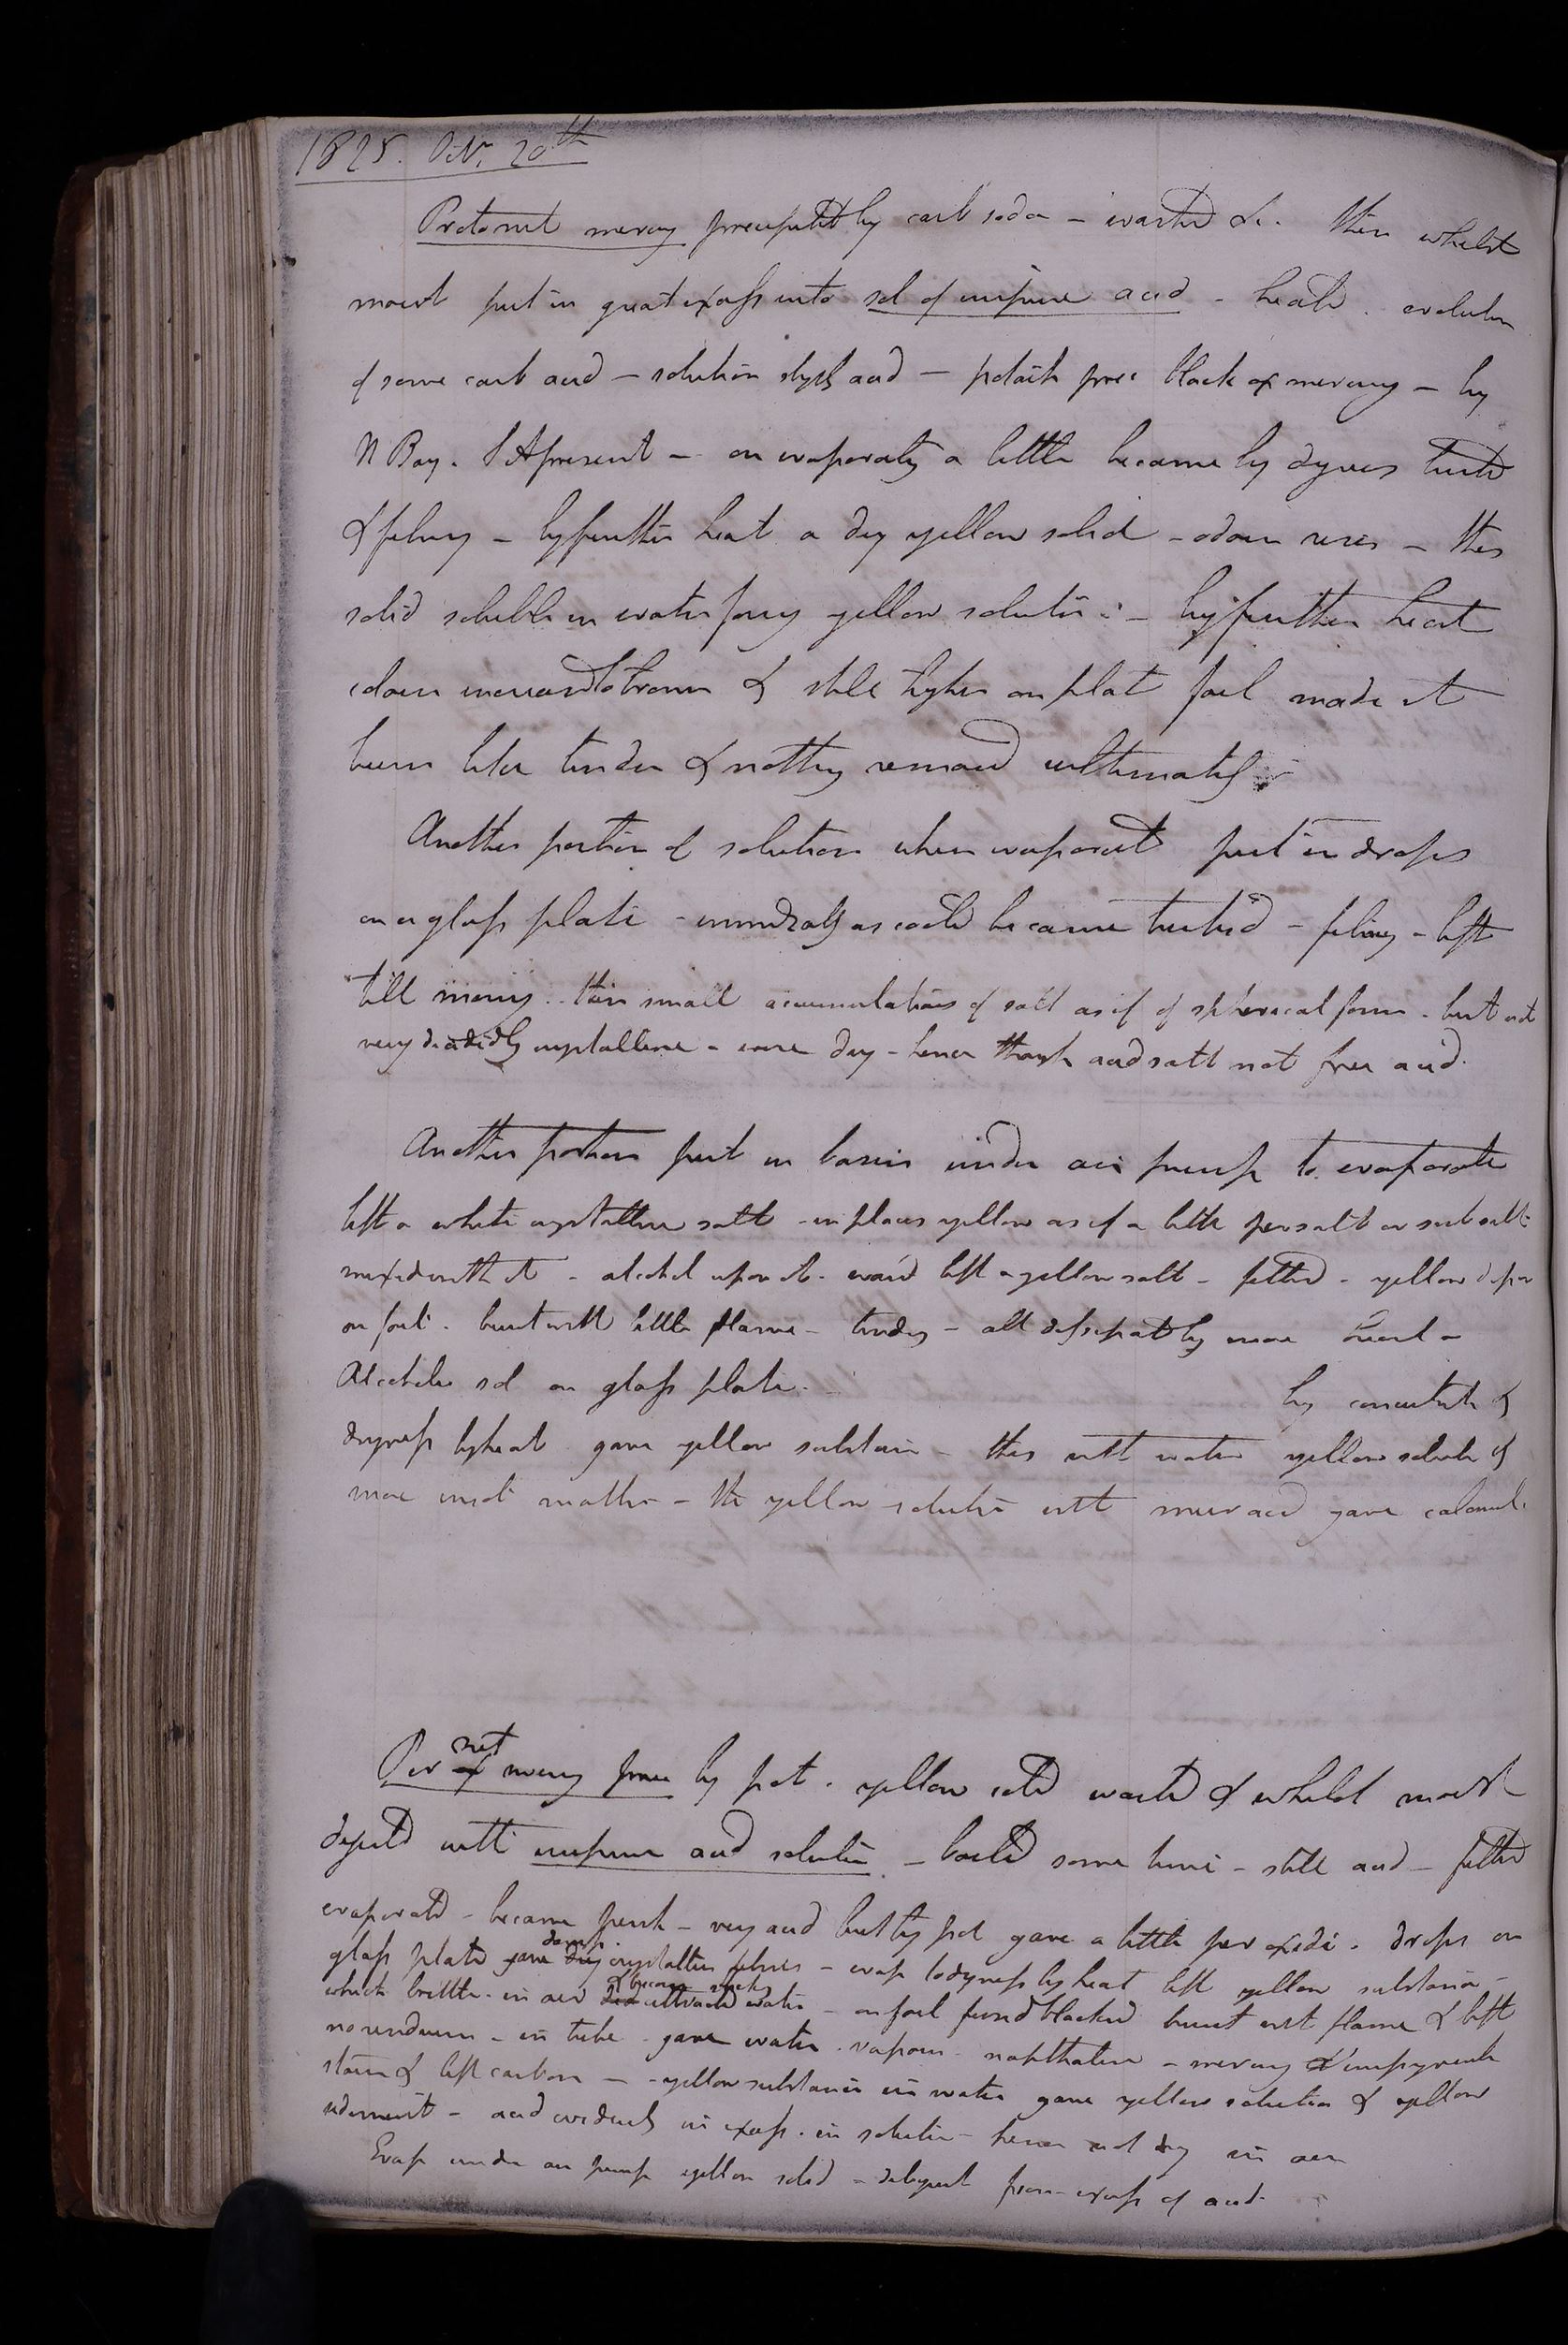 1825. Octr. 20th
Protonit mercury precipitd by carb soda - washed &c. then whilst
moist put in great excess into sol of impure acid - heated. evolution
of some carb acid - solution slightly acid - potash prec black ox mercury - by
N Bary. S A present - on evaporatg a little became by degrees turbid
& filmy - by further heat a dry yellow solid - odour rises - this
solid soluble in water formg yellow solution - by further heat
colour increased to brown & still higher on plat foil made it
burn like tinder & nothing remaind ultimately
Another portion of solution when evaporatd put in drops
on a glass plate - immediately as coold became turbid - filmy - left
till morng. then small accumulations of salt as if of spherical form. but not
very decidedly crystalline - were dry - hence though acid salt not free acid.
Another portion put in basin under air pump to evaporate
left a white crystalline salt - in places yellow as if a little persalt or subsalt
mixed with it - alcohol upon it. left a yellow salt - filtered - yellow
on foil. burnt with little flame - tindery - all dissipated by more heat -
Alcoholic sol on glass plate. by concentratn &
dryness by heat gave yellow substance - this with water yellow solution &
more insol matter - the yellow solution with mur acid gave calomel.
Per nit mercury prec by pot. yellow oxide washed & whilst moist
digestd with impure acid solution - boiled some time - still acid - filtered
evaporated - became pink - very acid but by pot gave a little per oxide. drops on
glass plate gave dry damp crystalline films - evap to dryness by heat left yellow substance -
which brittle. in air did attracted water & became sticky - on foil fused blackend burnt with flame & left
no residuum - in tube gave water. vapour - napthaline - mercury & empyreumatic
stain & left carbon - - yellow substance in water gave yellow solution & yellow
sediment - acid evidently in excess. in solution - hence not dry in air
Evap under air pump yellow solid - deliquesct from excess of acid.